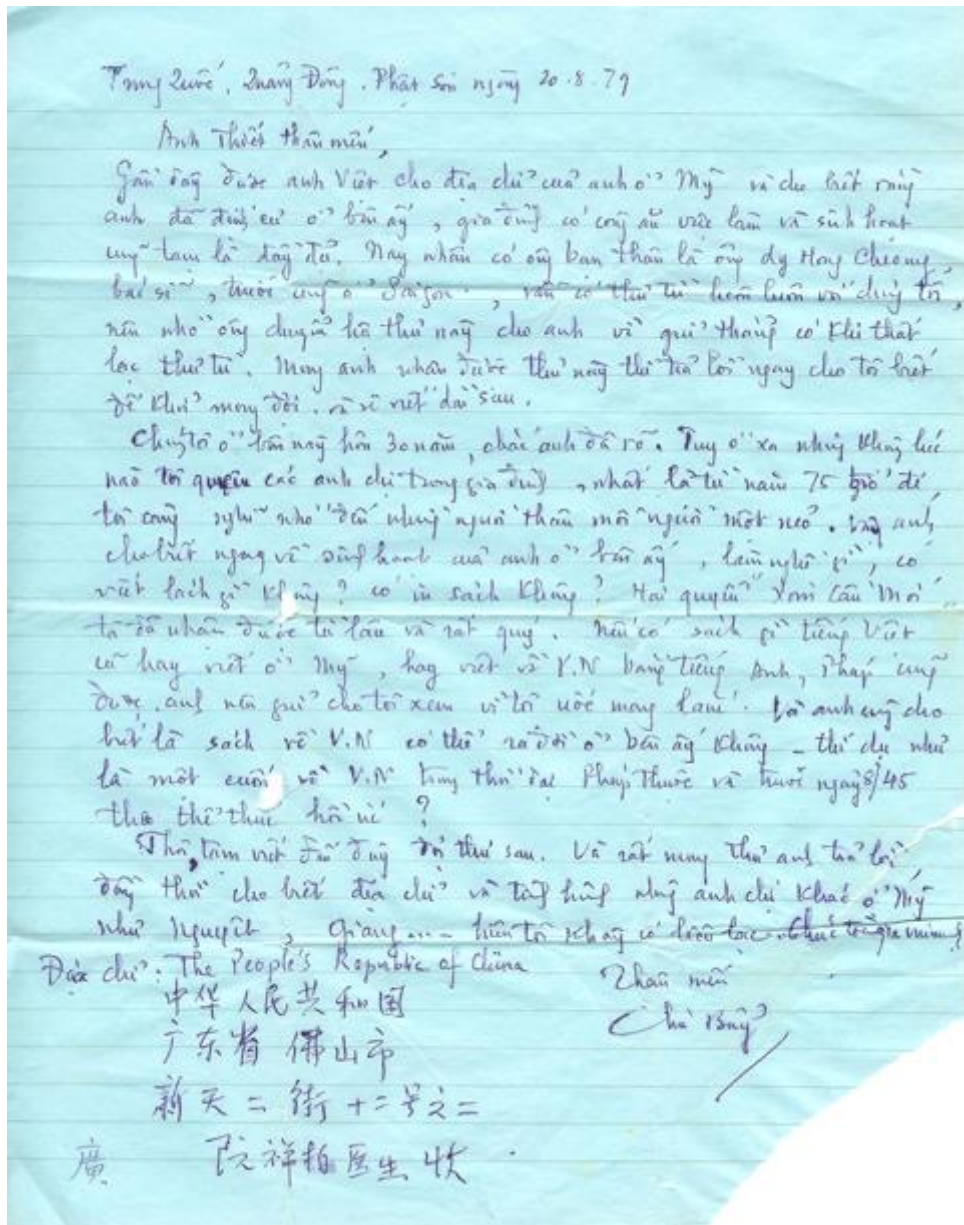 Trung Quốc, Quảng Đông, Phật Sơn ngày 20.8.79
Anh Thiết thân mến,
Gần đây được anh Việt cho địa chỉ của anh ở Mỹ và cho biết rằng
anh đã định cư ở bên ấy, gia đình có công ăn việc làm và sinh hoạt
cũng tạm là đầy đủ. Nay nhân có ông bạn thân là ông dg Hong Cheong
bác sĩ, trước cũng ở Saigon, vẫn có thư từ luôn luôn với chúng tôi,
nên nhờ ông chuyển hộ thư này cho anh vì gửi thẳng có khi thất
lạc thư từ. Mong anh nhận được thư này thì trả lời ngay cho tôi biết
để khỏi mong đợi. và sẽ viết dài sau.
Chúng tôi ở bên này hơn 30 năm, chắc anh đã rõ. Tuy ở xa nhưng không lúc
nào tôi quyên các anh chị trong gia đình, nhất là từ năm 75 trở đi,
tôi càng nghĩ nhớ đến những người thân mỗi người một nẻo. anh
cho biết ngay về sinh hoạt của anh ở bên ấy, làm nghề gì, có
viết lách gì không? có in sách không? Hai quyển Xóm Cầu Mới
tôi đã nhận được từ lâu và rất quý. Nếu có sách gì tiếng Việt
cũ hay viết ở Mỹ, hay viết về V.N bằng tiếng Anh, Pháp cũng
được. anh nên gửi cho tôi xem vì tôi ước mong lắm. Và anh cũng cho
biết là sách về V.N có thể ra đời ở bên ấy không - thí dụ như
là một cuốn về V.N trong thời đại Pháp thuộc và trước ngày 8/45
theo thể thức hồi ký?
Thôi, tạm viết đến đây đợi thư sau. Và rất mong thư anh trả lời
đồng thời cho biết địa chỉ và tình hình những anh chị khác ở Mỹ
như Nguyệt, Giang.... hiện tôi không có liên lạc. Chúc toàn gia mạnh
Địa chỉ: The People's Republic of China
Thân mến
中华人民共和国
广东省 佛山市
新天二街十二号之二
廣 阮祥柏医生 收